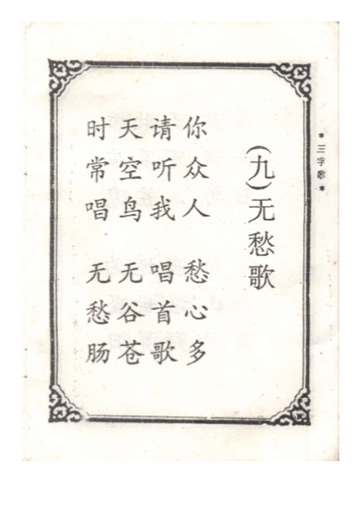 *三字歌*
(九)无愁歌
你众人 愁心多
请听我 唱首歌
天空鸟 无谷苍
时常唱 无愁肠